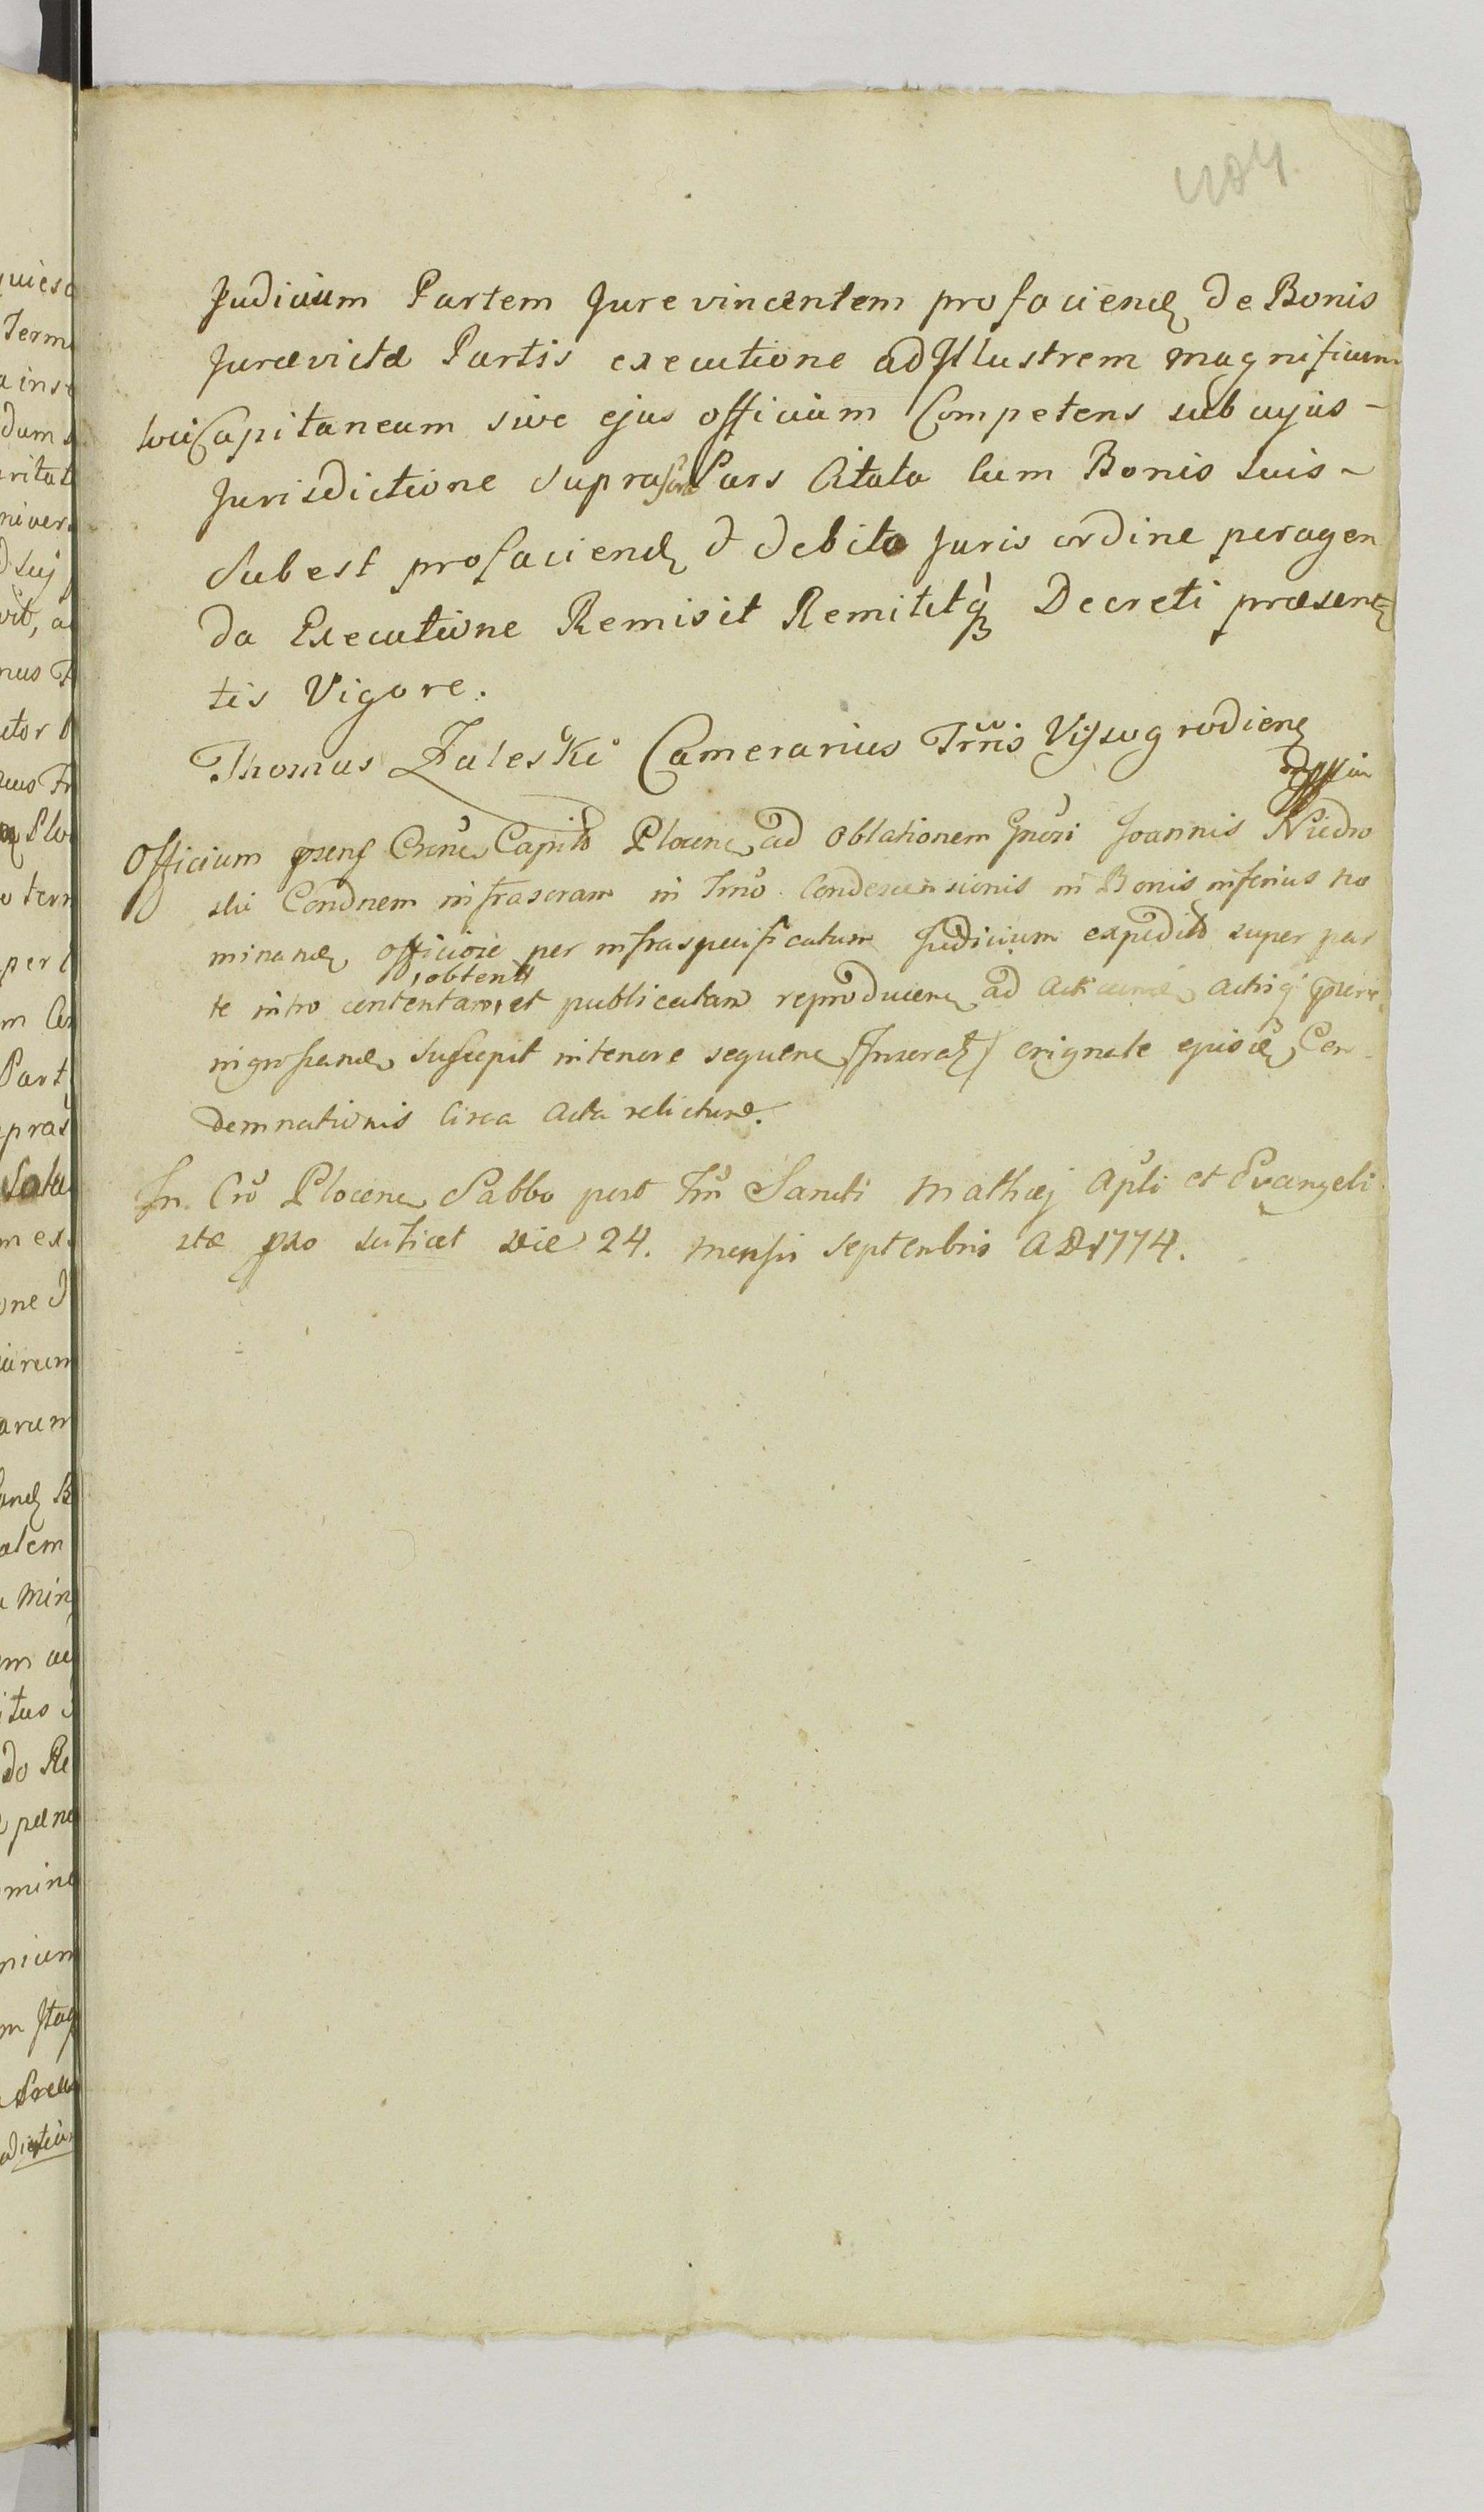 484
Judicium Partem Jurevincentem pro faciend de Bonis
Jurævictæ Partis executione ad Illustrem Magnificum
loci Capitaneum sive ejus officium Competens sub cujus -
Jurisdictione supraſcrta Pars Citata cum Bonis suis -
Subest pro faciend & debito Juris ordine peragen
da Executione Remisit Remititq Decreti præsen
tis Vigore.
Thomas Zaleski Camerarius Trrīs Vÿszogrodienẽ
Officium præns Crense Capitō Plocen ad oblationem Gnosi Joannis Niedro
ski Condnem infrascram in Tmō Condescensionis in Bonis inferius no
minand officiose per infraspecificatum Judicium expedit super par
te intro contentam, obtent et publicatam reproducen ad acticand actisq præn
ingrossand suscepit in tenore sequen /Inserat/ originale episd Con
demnationis circa acta relictura.
In Crō Plocen Sabbo post Fm Sancti Mathæj Apli et Evangeli
stæ pxo scilicet die 24. mensis septembris AD 1774.